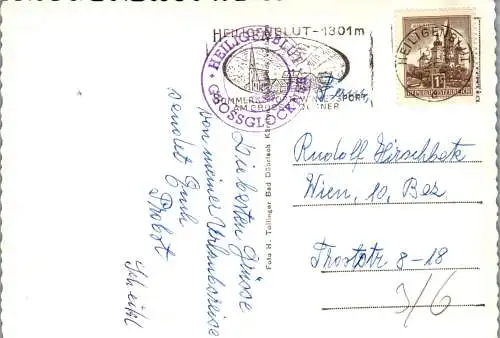 HEILIGENBLUT - 1301 m
HEILIGENBLUT
GROSSGLOCKNER
SOMMER
SPORT
AM GROSSGLOCKNER
HEILIGENBLUT
1S
REPUBLIK ÖSTERREICH
Die besten Grüsse
von meiner Urlaubsreise
sendet Euch
Probst
Scheikl
Foto H. Tollinger Bad Döllach Kärnten
Rudolf Hirschbek
Wien, 10, Bez
Troststr. 8-18
3/6